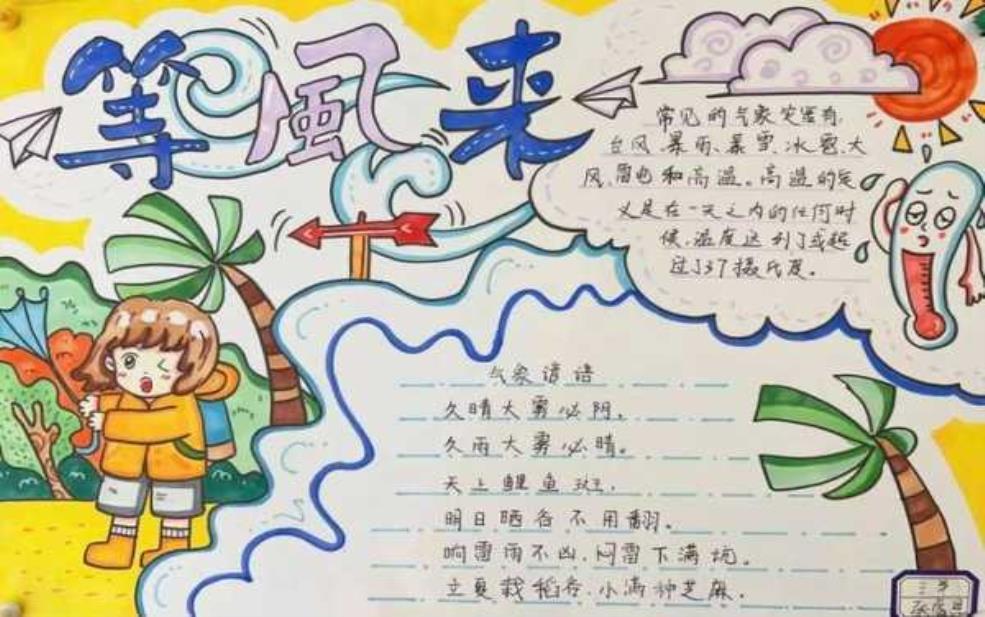 等風来
常见的气象灾害有
台风、暴雨、暴雪、冰雹、大
风、雷电和高温。高温的定
义是在一天之内的任何时
候,温度达到了或超
过了37摄氏度。
气象谚语
久晴大雾必阴。
久雨大雾必晴。
天上鲤鱼斑,
明日晒谷不用翻。
响雷雨不凶,闷雷下满坑。
立夏栽稻谷,小满种芝麻。